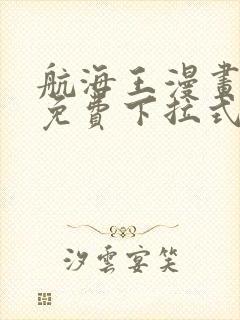 航海王漫畫
免費下拉式
汐雲宴笑